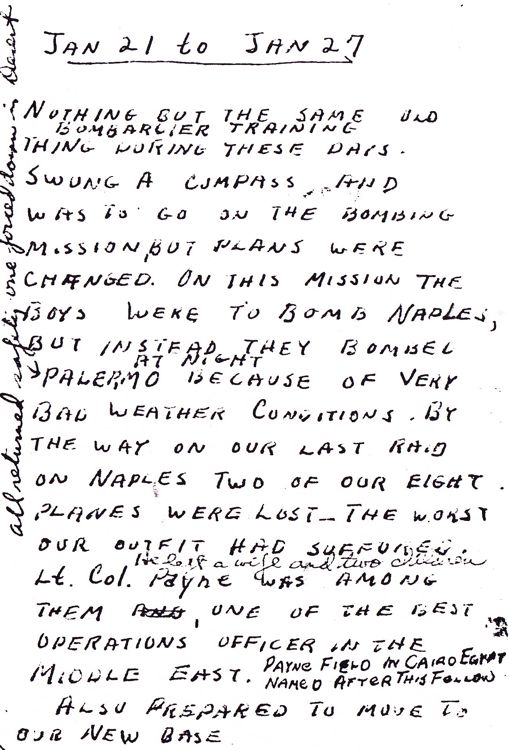 JAN 21 to JAN 27
NOTHING BUT THE SAME OLD
BOMBARDIER TRAINING
THING DURING THESE DAYS.
SWUNG A COMPASS AND
WAS TO GO ON THE BOMBING
MISSION, BUT PLANS WERE
CHANGED. ON THIS MISSION THE
BOYS WERE TO BOMB NAPLES,
BUT INSTEAD THEY BOMBED
AT NIGHT
PALERMO BECAUSE OF VERY
BAD WEATHER CONDITIONS. BY
THE WAY ON OUR LAST RAID
ON NAPLES TWO OF OUR EIGHT
PLANES WERE LOST - THE WORST
OUR OUTFIT HAD SUFFURED.
He left a wife and two children
Lt. Col. Payne WAS AMONG
THEM AND, ONE OF THE BEST
OPERATIONS OFFICER IN THE
MIDDLE EAST. PAYNE FIELD IN CAIRO EGYPT
NAMED AFTER THIS FELLOW
ALSO PREPARED TO MOVE TO
OUR NEW BASE
all returned safely one forced down in Desert